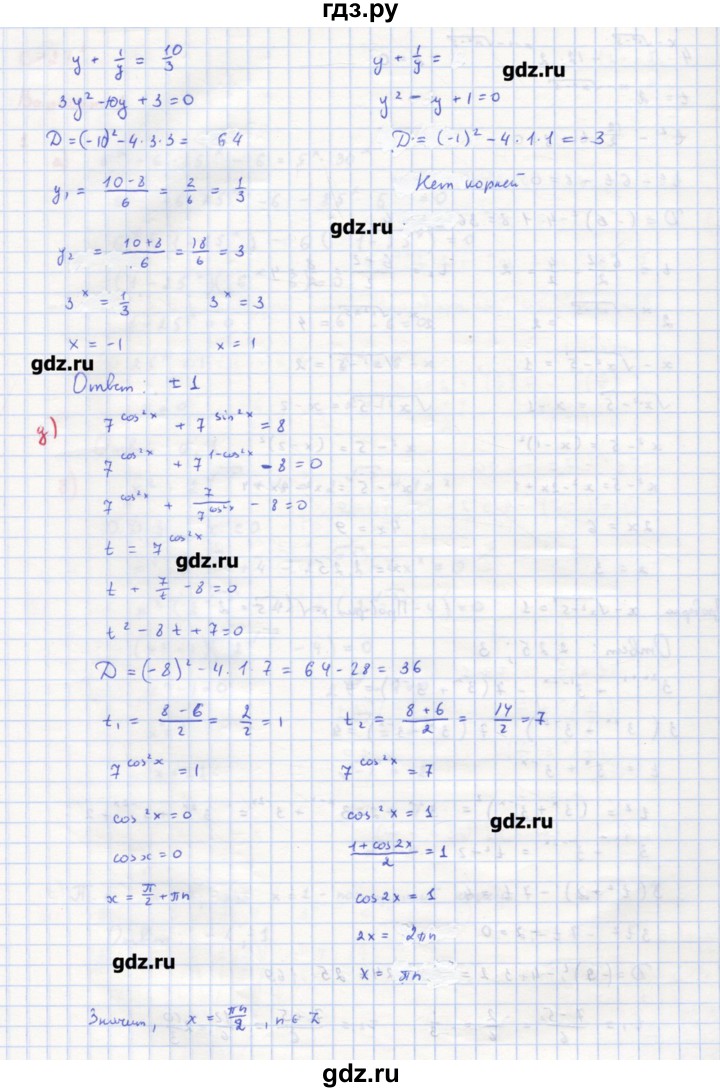 гдз.ру
y + 1/y = 10/3
3y² - 10y + 3 = 0
D = (-10)² - 4·3·3 = 64
y₁ = (10-8)/6 = 2/6 = 1/3
y₂ = (10+8)/6 = 18/6 = 3
3^x = 1/3    3^x = 3
x = -1    x = 1
y + 1/y =
gdz.ru
y² - y + 1 = 0
D = (-1)² - 4·1·1 = -3
Нет корней
gdz.ru
gdz.ru
Ответ: ±1
д)
7^(cos²x) + 7^(sin²x) = 8
7^(cos²x) + 7^(1-cos²x) - 8 = 0
7^(cos²x) + 7/7^(cos²x) - 8 = 0
t = 7^(cos²x)
gdz.ru
t + 7/t - 8 = 0
t² - 8t + 7 = 0
D = (-8)² - 4·1·7 = 64 - 28 = 36
t₁ = (8-6)/2 = 2/2 = 1    t₂ = (8+6)/2 = 14/2 = 7
7^(cos²x) = 1    7^(cos²x) = 7
cos²x = 0    cos²x = 1
gdz.ru
cosx = 0    (1+cos2x)/2 = 1
x = π/2 + πn    cos2x = 1
2x = 2πn
gdz.ru
x = πn
Значит, x = πn/2, n ∈ Z
гдз.ру